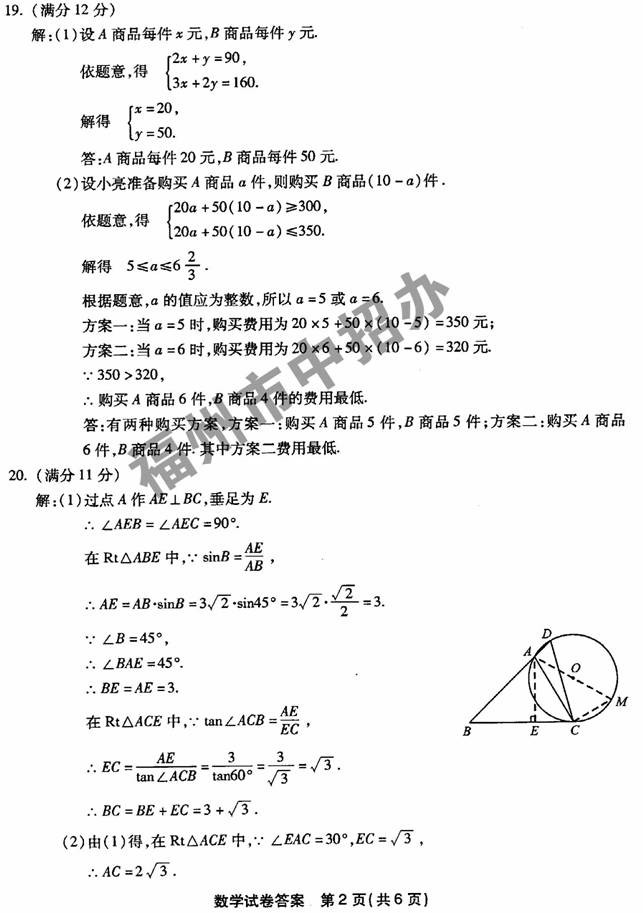 19. (满分12分)
解:(1)设A商品每件x元,B商品每件y元.
依题意,得 {2x+y=90,
3x+2y=160.
解得 {x=20,
y=50.
答:A商品每件20元,B商品每件50元.
(2)设小亮准备购买A商品a件,则购买B商品(10-a)件.
依题意,得 {20a+50(10-a)≥300,
20a+50(10-a)≤350.
解得 5≤a≤6 2/3.
根据题意,a的值应为整数,所以a=5或a=6.
方案一:当a=5时,购买费用为20×5+50×(10-5)=350元;
方案二:当a=6时,购买费用为20×6+50×(10-6)=320元.
∵350>320,
∴购买A商品6件,B商品4件的费用最低.
答:有两种购买方案,方案一:购买A商品5件,B商品5件;方案二:购买A商品
6件,B商品4件.其中方案二费用最低.
福州市中招办
20. (满分11分)
解:(1)过点A作AE⊥BC,垂足为E.
∴∠AEB=∠AEC=90°.
在Rt△ABE中,∵sinB=AE/AB,
∴AE=AB·sinB=3√2·sin45°=3√2·√2/2=3.
∵∠B=45°,
∴∠BAE=45°.
∴BE=AE=3.
在Rt△ACE中,∵tan∠ACB=AE/EC,
∴EC=AE/tan∠ACB=3/tan60°=3/√3=√3.
∴BC=BE+EC=3+√3.
(2)由(1)得,在Rt△ACE中,∵∠EAC=30°,EC=√3,
∴AC=2√3.
D
A
O
M
B
E
C
数学试卷答案 第2页(共6页)